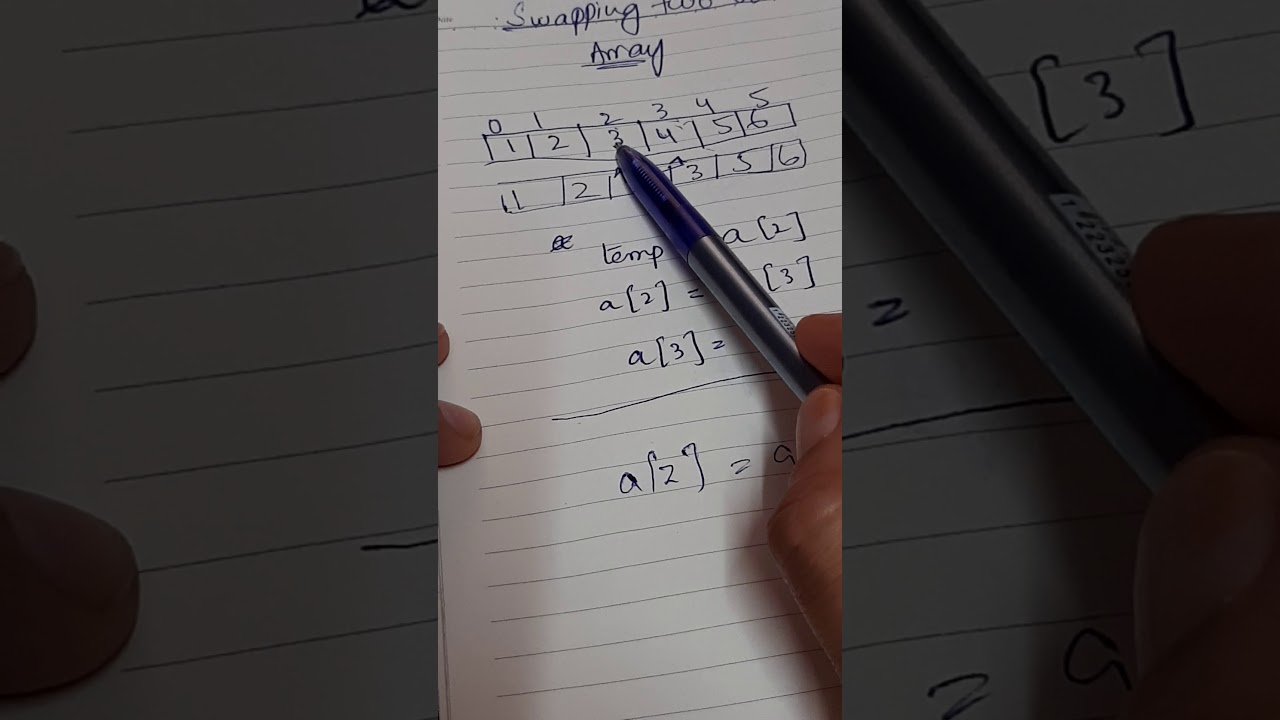 Swapping two
Array
0 1 2 3 4 5
1 2 3 4 5 6
1 2 3 5 6
temp a[2]
a[2] = [3]
a[3] =
a[2] = a